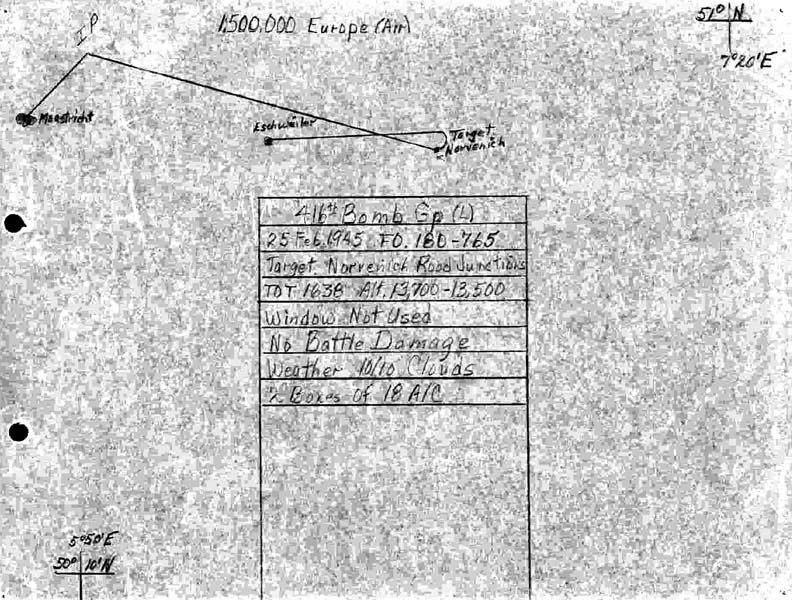 1,500,000 Europe (Air)
51° N
7°20'E
I P
Maastricht
Eschweiler
Target
Norvenich
416th Bomb Gp (L)
25 Feb. 1945 F.O. 180-765
Target Norvenich Road Junctions
TOT 1638 Alt. 13,700-13,500
Window Not Used
No Battle Damage
Weather 10/10 Clouds
2 Boxes of 18 A/C
5°50'E
50° 10'N